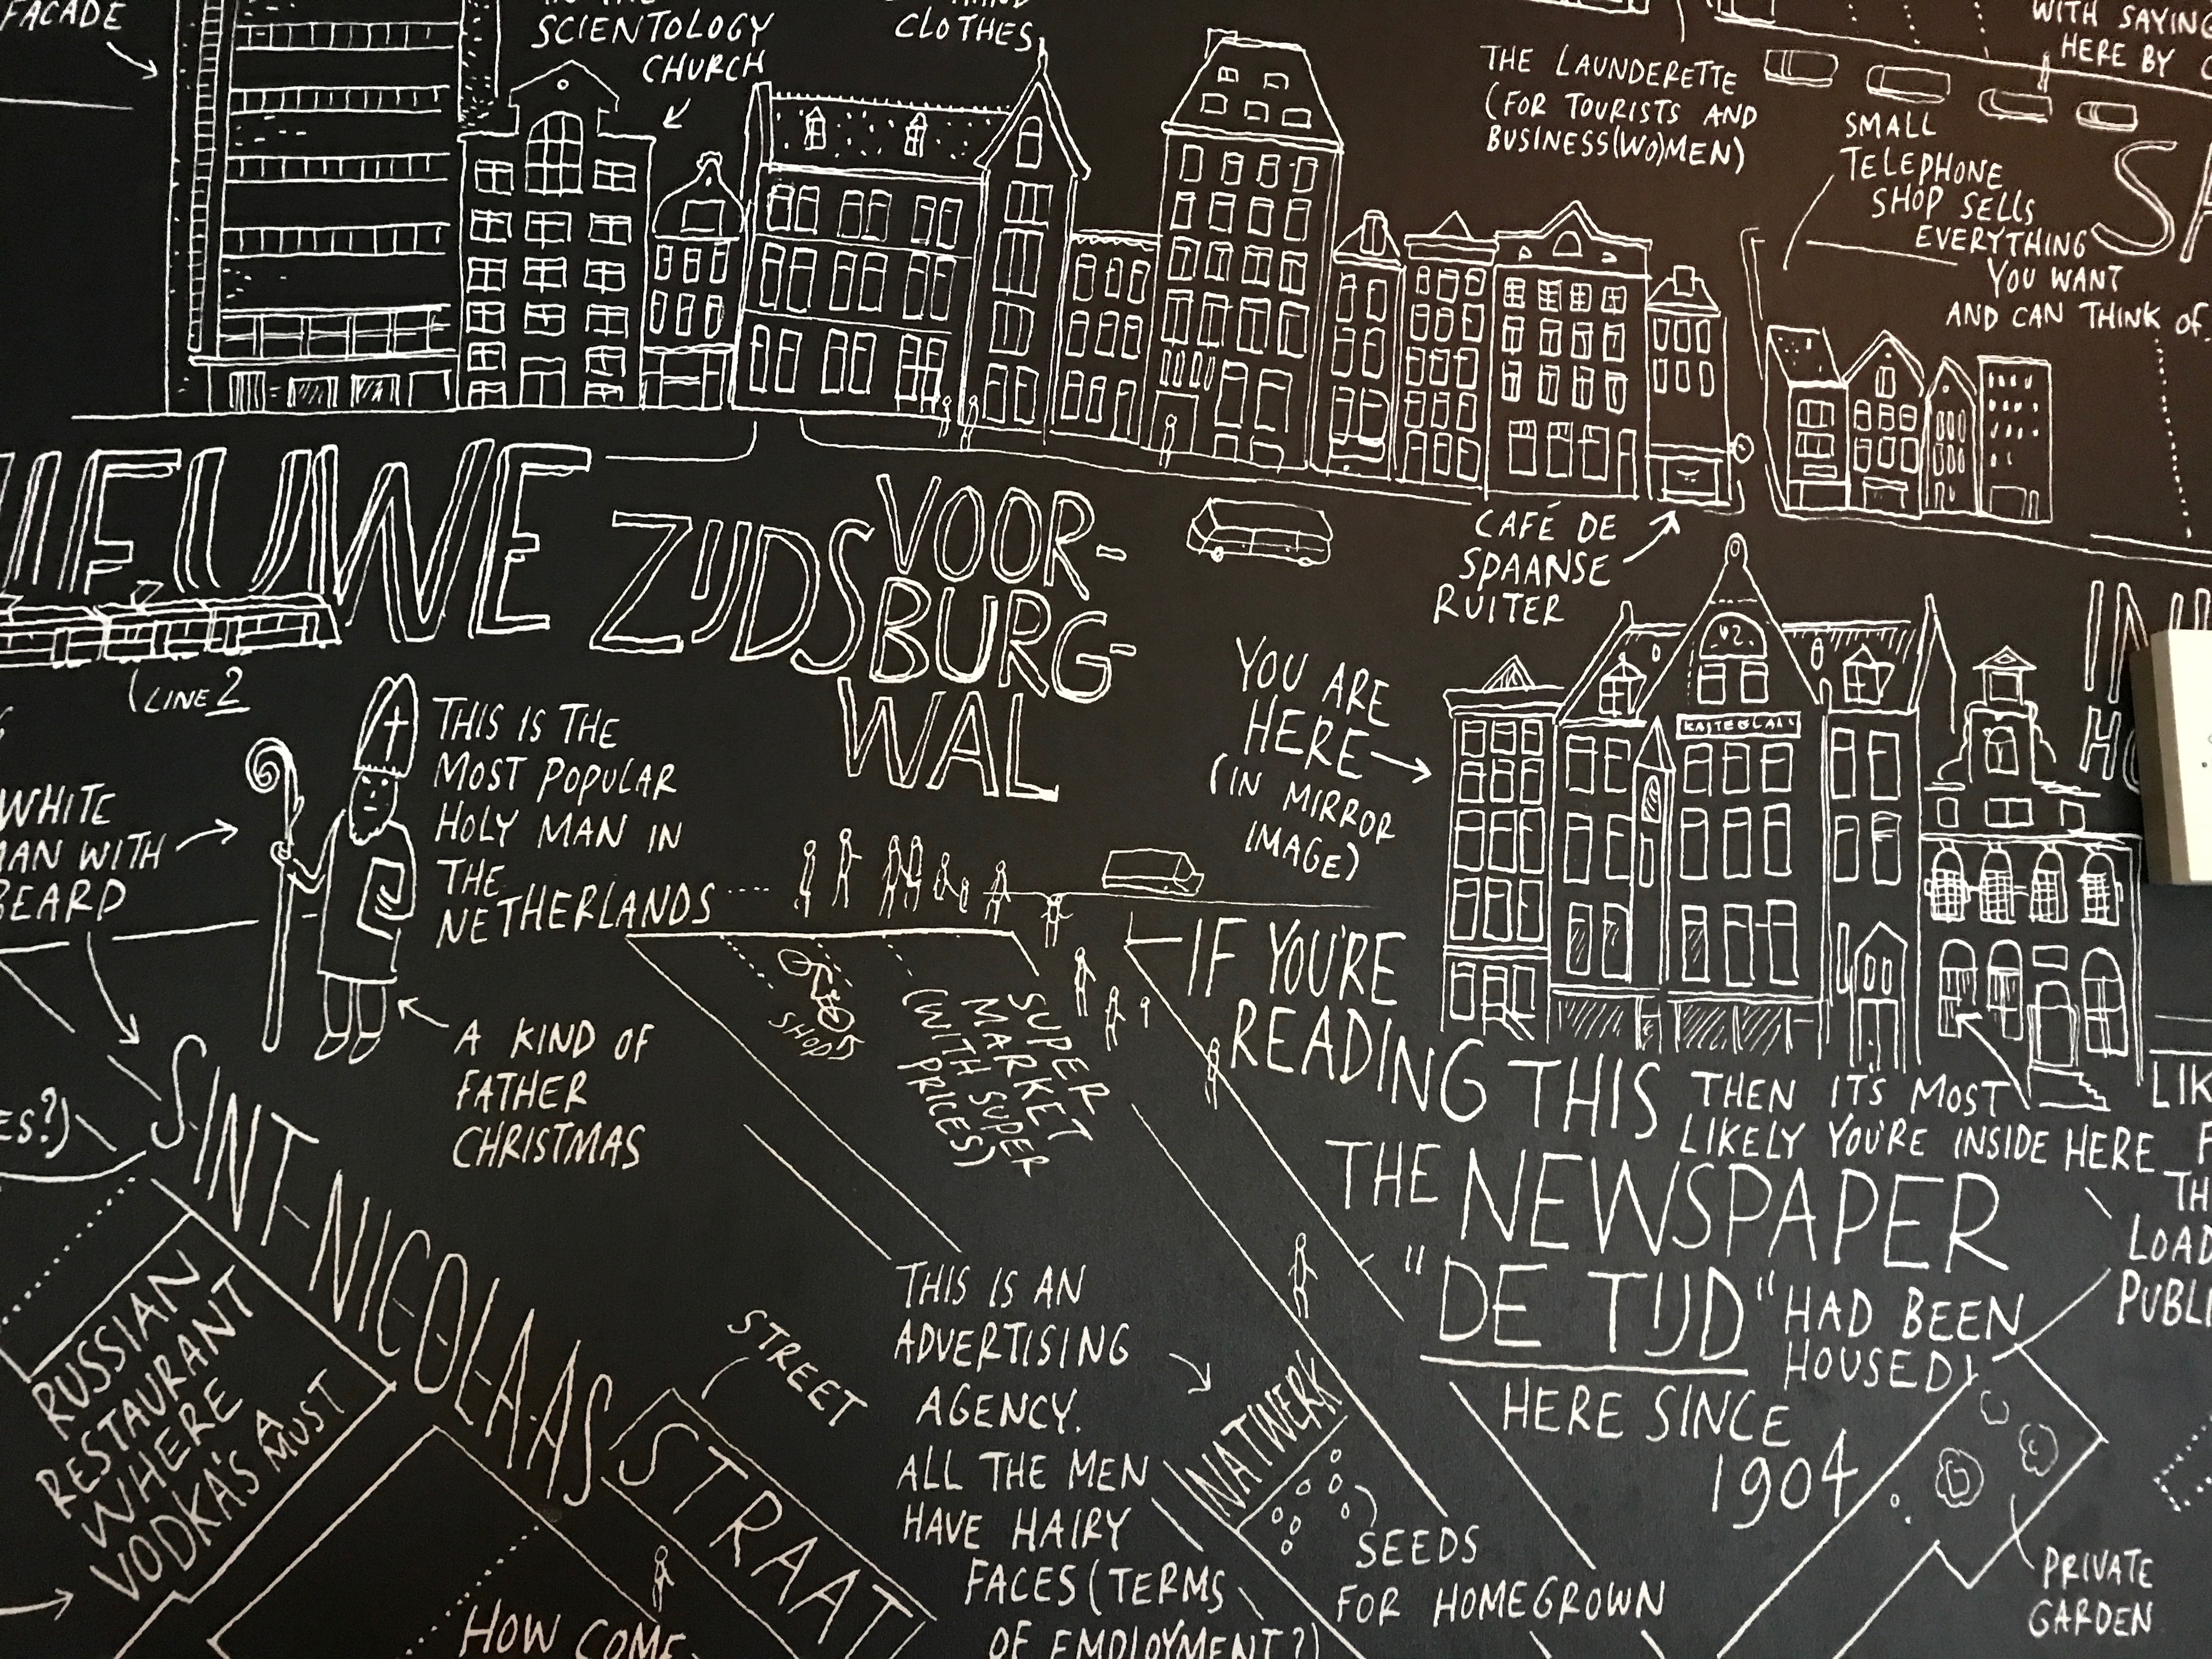 FACADE
SCIENTOLOGY
CHURCH
CLOTHES
THE LAUNDERETTE
(FOR TOURISTS AND
BUSINESS(WO)MEN)
WITH SAYING
HERE BY
SMALL
TELEPHONE
SHOP SELLS
EVERYTHING
YOU WANT
AND CAN THINK OF
NIEUWE ZIJDS VOOR-
BURG-
WAL
(LINE 2
CAFÉ DE
SPAANSE
RUITER
YOU ARE
HERE
(IN MIRROR
IMAGE)
WHITE
MAN WITH
BEARD
THIS IS THE
MOST POPULAR
HOLY MAN IN
THE
NETHERLANDS....
A KIND OF
FATHER
CHRISTMAS
SHOP
SUPER
MARKET
(WITH SUPER
PRICES)
IF YOU'RE
READING THIS THEN IT'S MOST
LIKELY YOU'RE INSIDE HERE
THE NEWSPAPER
"DE TIJD" HAD BEEN
HOUSED)
HERE SINCE
1904
LOAD
PUBLI
SINT-NICOLAAS STRAAT
STREET
RUSSIAN
RESTAURANT
WHERE
VODKA'S A MUST
THIS IS AN
ADVERTISING
AGENCY.
ALL THE MEN
HAVE HAIRY
FACES (TERMS
OF EMPLOYMENT?)
NATWERK
SEEDS
FOR HOMEGROWN
PRIVATE
GARDEN
HOW COME